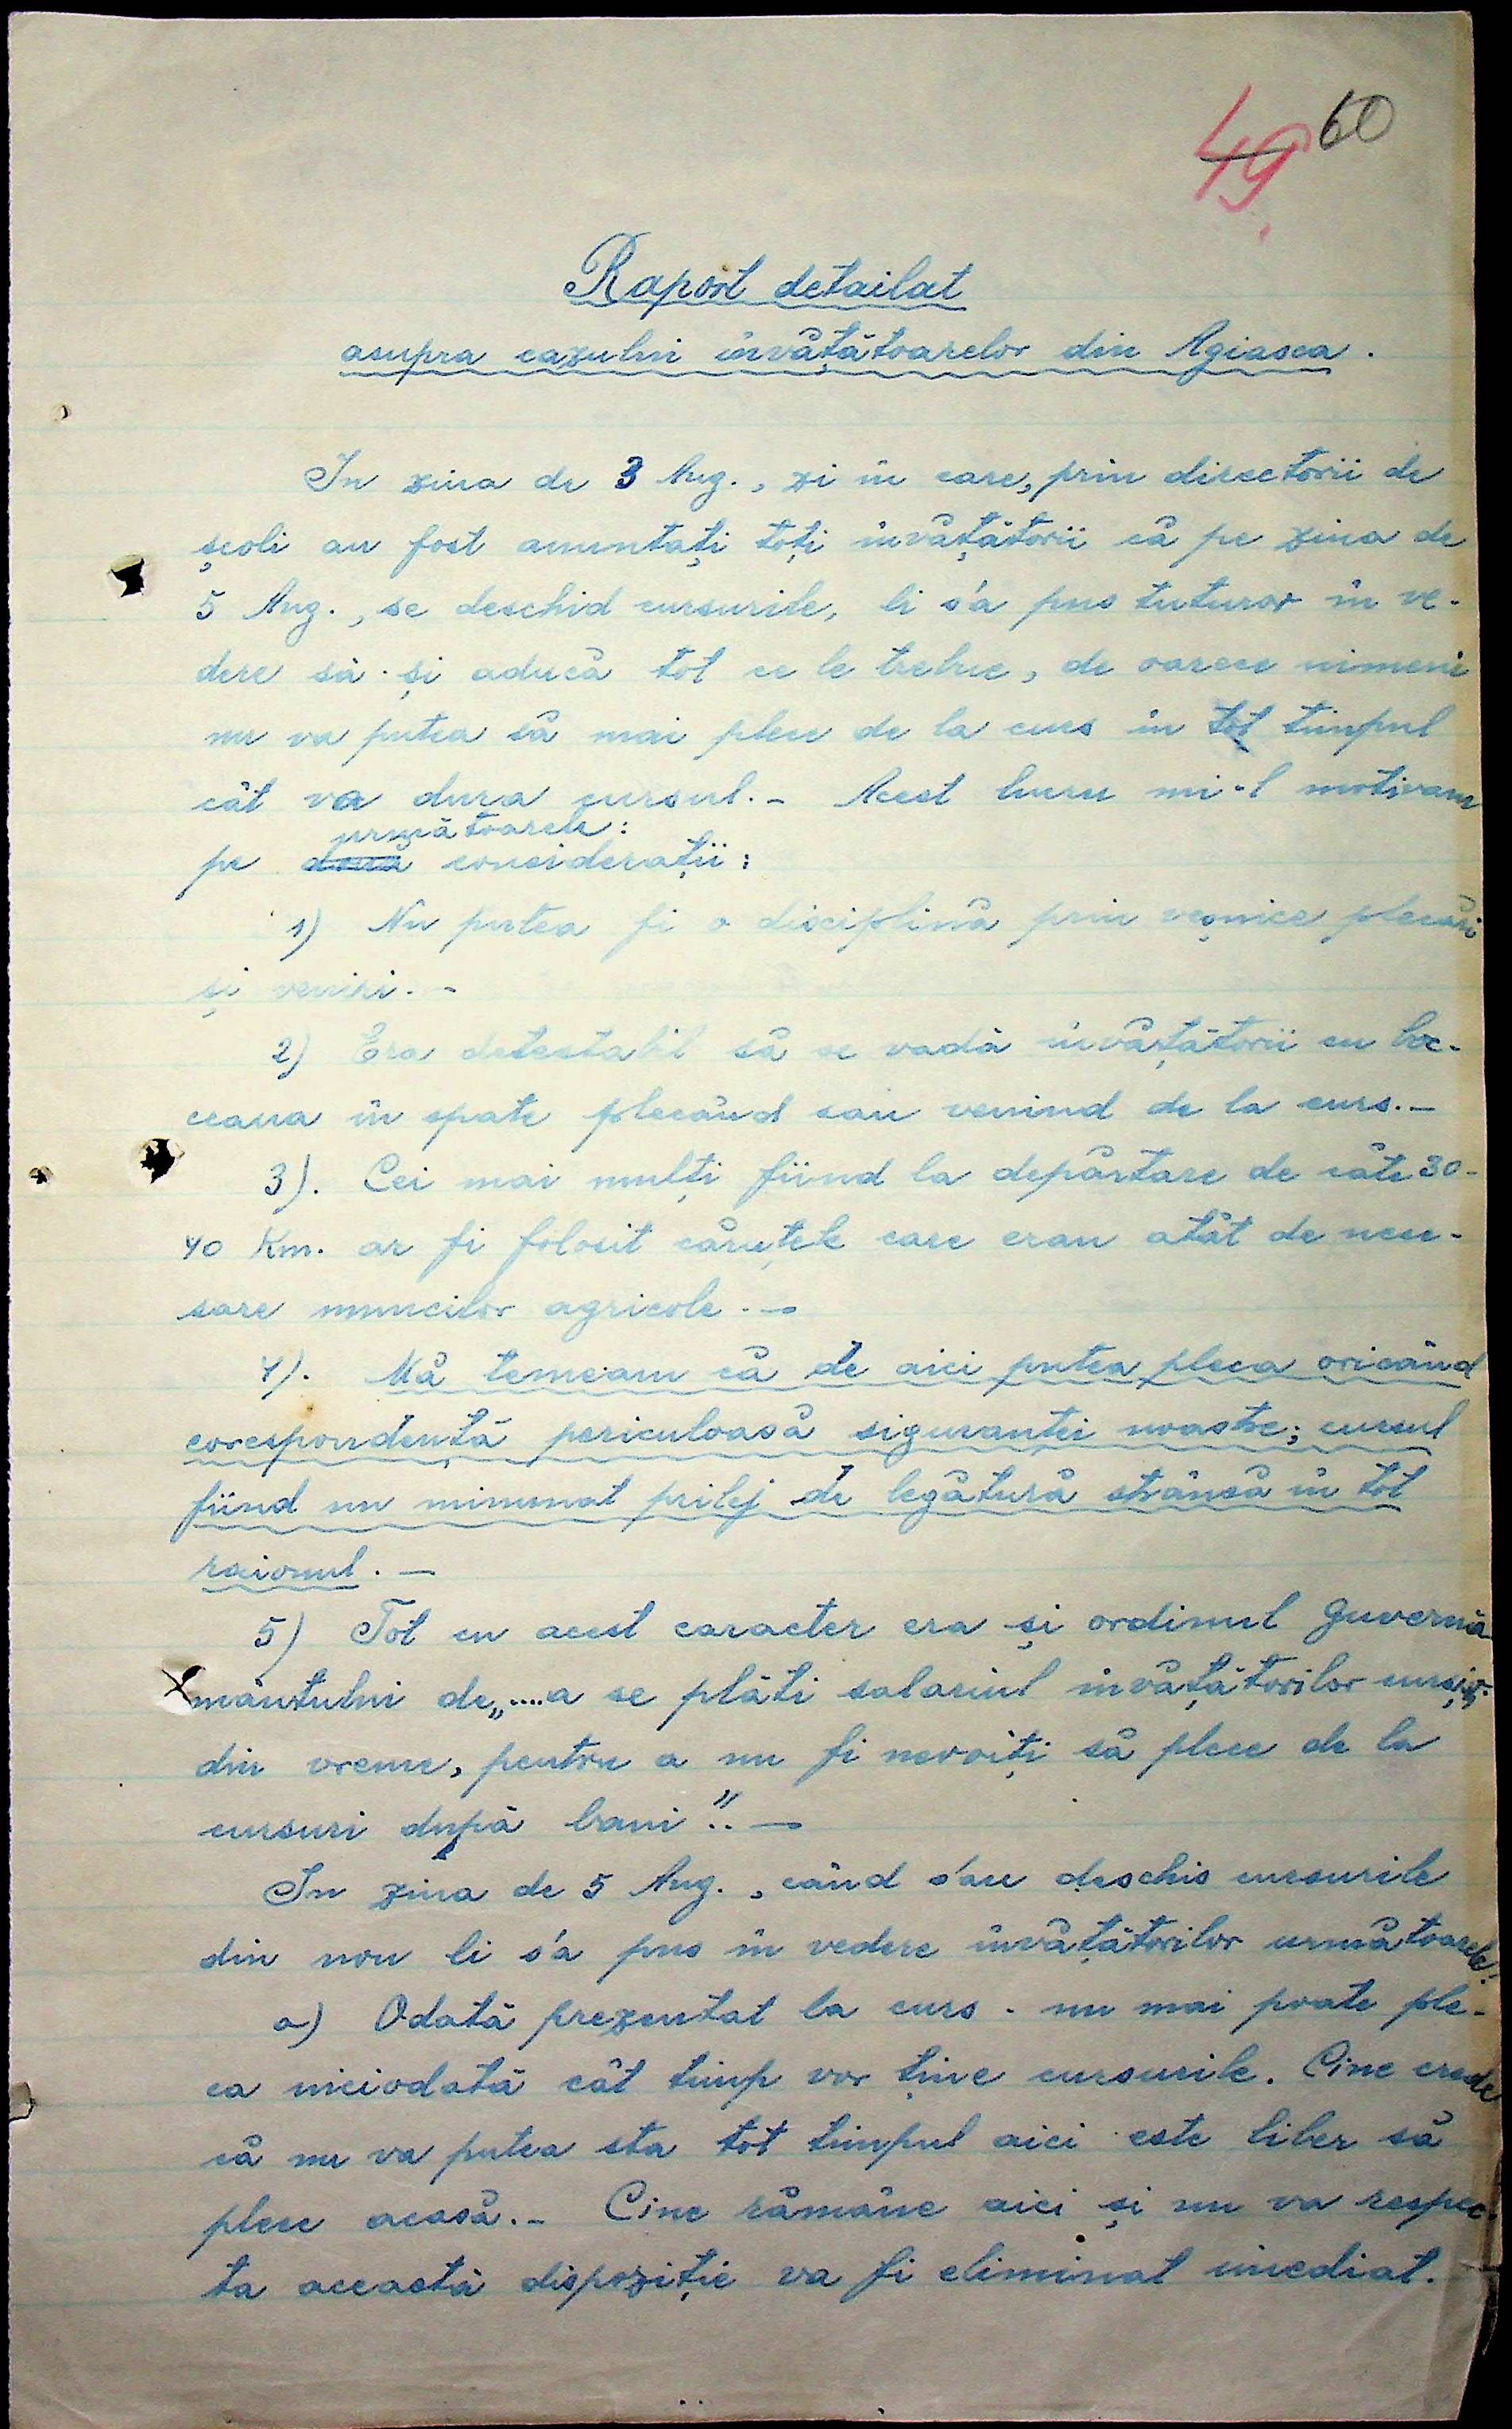 49 60
Raport detailat
asupra cazului învățătoarelor din Agiasca.
In ziua de 3 Aug., zi în care, prin directorii de
școli au fost anuntați toți învățătorii că pe ziua de
5 Aug., se deschid cursurile, li s'a pus tuturor în ve-
dere să-și aducă tot ce le trebue, de oarece nimeni
nu va putea să mai plece de la curs în tot timpul
cât va dura cursul.- Acest lucru mi-l motivam
următoarele:
pe două considerații:
1) Nu putea fi o disciplină prin veșnice plecări
și veniri.-
2) Era detestabil să se vadă învățătorii cu boc-
ceaua în spate plecând sau venind de la curs.-
3). Cei mai mulți fiind la depărtare de câte 30-
40 Km. ar fi folosit căruțele care erau atât de nece-
sare muncilor agricole.-
4). Mă temeam că de aici putea pleca oricând
corespondență periculoasă siguranței noastre; cursul
fiind un minunat prilej de legătură strânsă în tot
raionul.-
5) Tot cu acest caracter era și ordinul Guvernă-
mântului de „....a se plăti salariul învățătorilor
din vreme, pentru a nu fi nevoiți să plece de la
cursuri după bani".-
In ziua de 5 Aug., când s'au deschis cursurile
din nou li s'a pus în vedere învățătorilor următoarele:
a) Odată prezentat la curs - nu mai poate ple-
ca niciodată cât timp vor ține cursurile. Cine crede
că nu va putea sta tot timpul aici este liber să
plece acasă.- Cine rămâne aici și nu va respec-
ta această dispoziție va fi eliminat imediat.